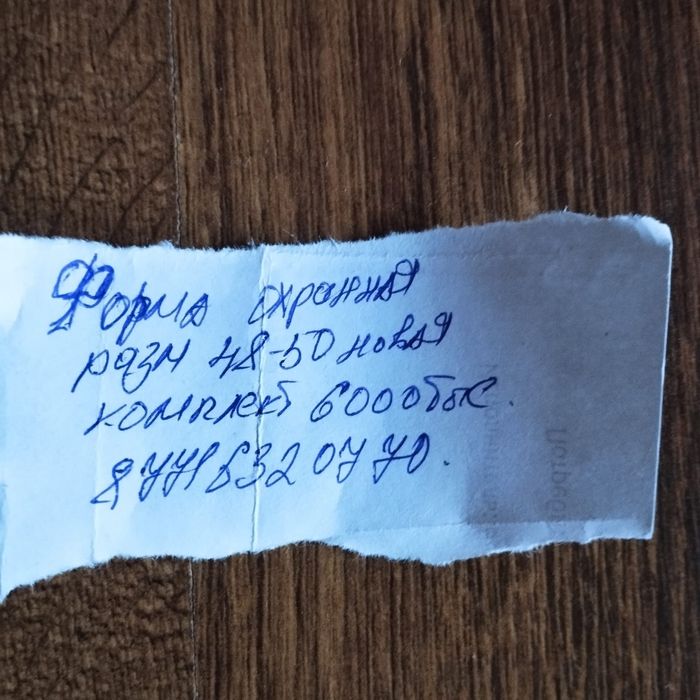 Форма охранная
разм 48-50 новая
комплект 6000 тыс.
87716320770.